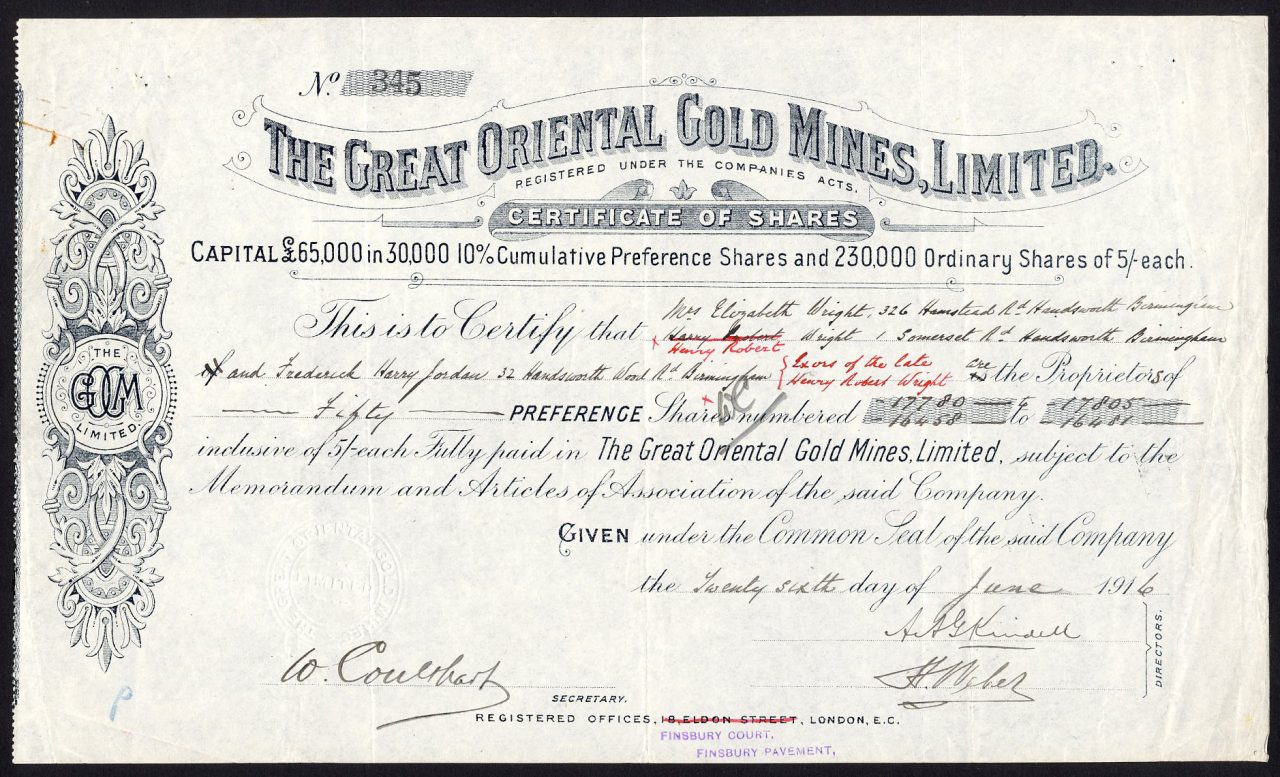 No. 345
THE GREAT ORIENTAL GOLD MINES, LIMITED.
REGISTERED UNDER THE COMPANIES ACTS.
CERTIFICATE OF SHARES
CAPITAL £65,000 in 30,000 10% Cumulative Preference Shares and 230,000 Ordinary Shares of 5/- each.
Mrs Elizabeth Wright, 326 Hamstead Rd Handsworth Birmingham
This is to Certify that Harry Wright 1 Somerset Rd Handsworth Birmingham
x Henry Robert
and Frederick Harry Jordan 32 Handsworth Wood Rd Birmingham { Exors of the late Henry Robert Wright are the Proprietors of
Fifty PREFERENCE Shares numbered 17780 to 17805
16458 to 16481
inclusive of 5/- each Fully paid in The Great Oriental Gold Mines, Limited, subject to the
Memorandum and Articles of Association of the said Company.
GIVEN under the Common Seal of the said Company
the Twenty sixth day of June 1916
A A G Kindell
H. Weber
DIRECTORS.
W. Coulthart
SECRETARY.
REGISTERED OFFICES, 18, ELDON STREET, LONDON, E.C.
FINSBURY COURT,
FINSBURY PAVEMENT,
THE
GOGM
LIMITED
P